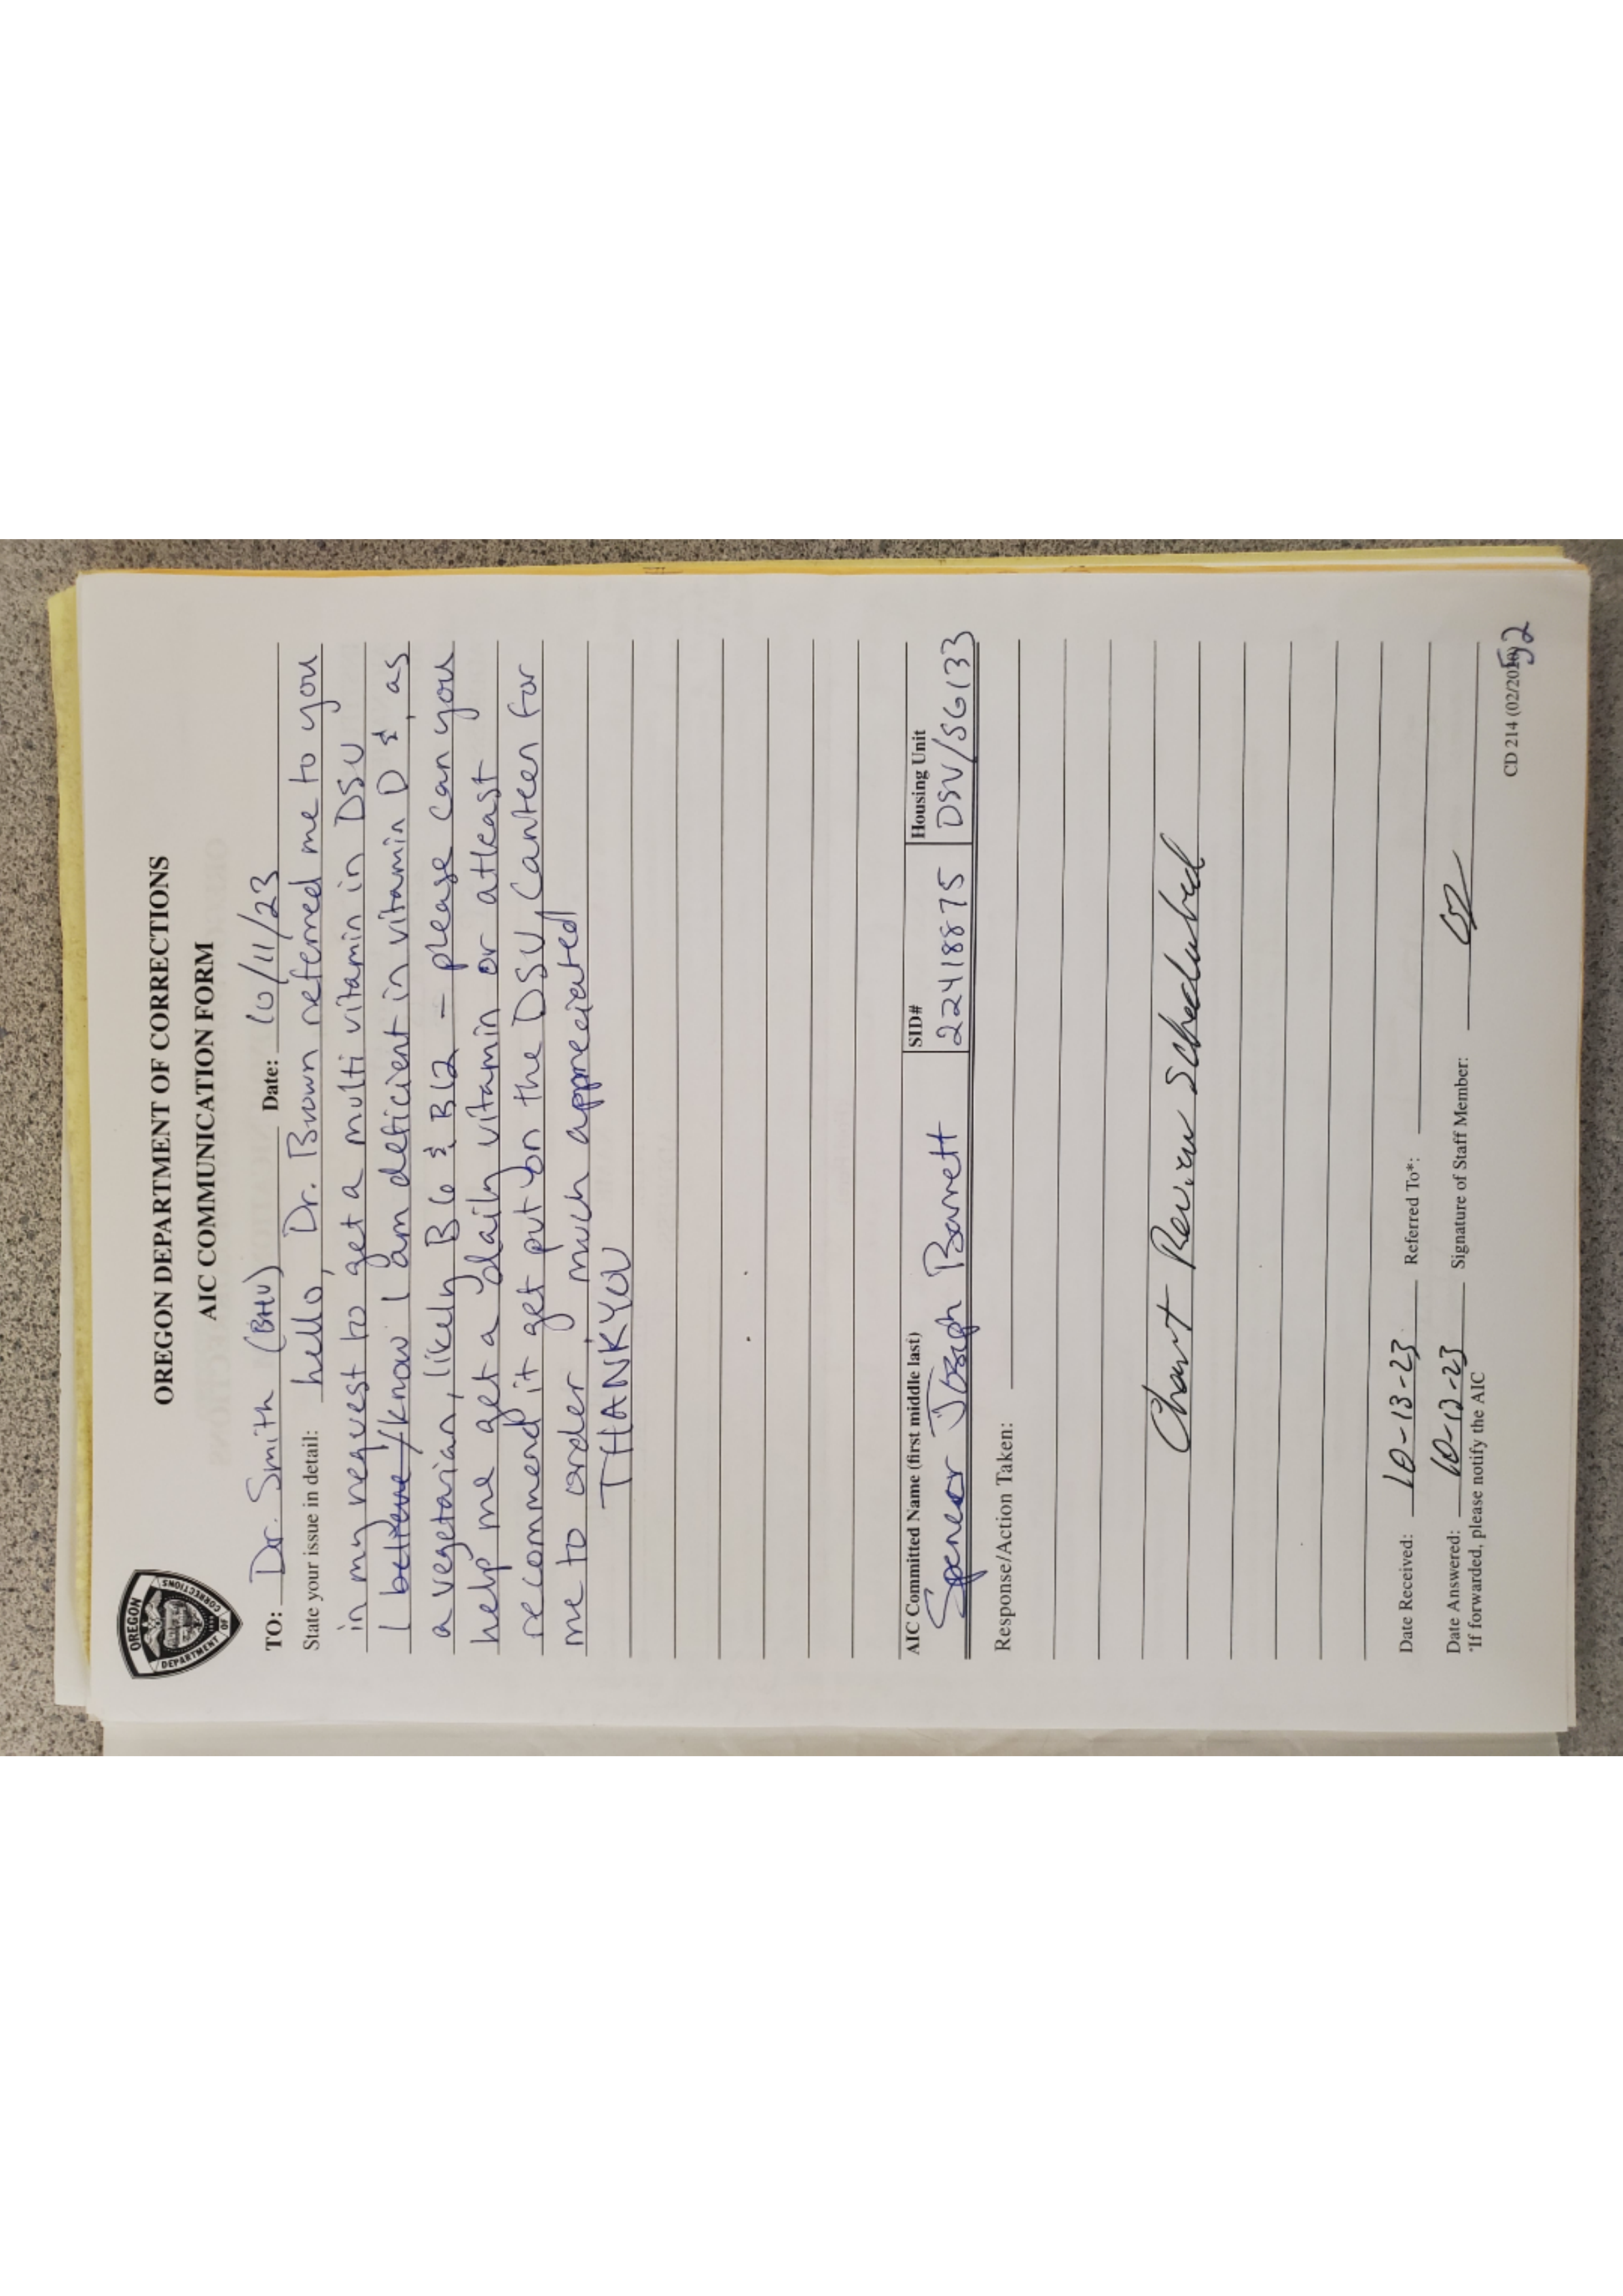 OREGON DEPARTMENT OF CORRECTIONS
AIC COMMUNICATION FORM
OREGON
DEPARTMENT OF
CORRECTIONS
TO: Dr. Smith (BHU) Date: 10/11/23
State your issue in detail: hello, Dr. Brown referred me to you
in my request to get a multi vitamin in DSU
I believe/know I am deficient in vitamin D &, as
a vegetarian, likely B6 & B12 – please can you
help me get a daily vitamin or atleast
recommend it get put on the DSU Canteen for
me to order much appreciated
THANKYOU
AIC Committed Name (first middle last) SID# Housing Unit
Spencer Joseph Barrett 22418875 DSU/SG133
Response/Action Taken:
Chart Review Scheduled
Date Received: 10-13-23 Referred To*:
Date Answered: 10-13-23 Signature of Staff Member:
*If forwarded, please notify the AIC
CD 214 (02/2020)
592